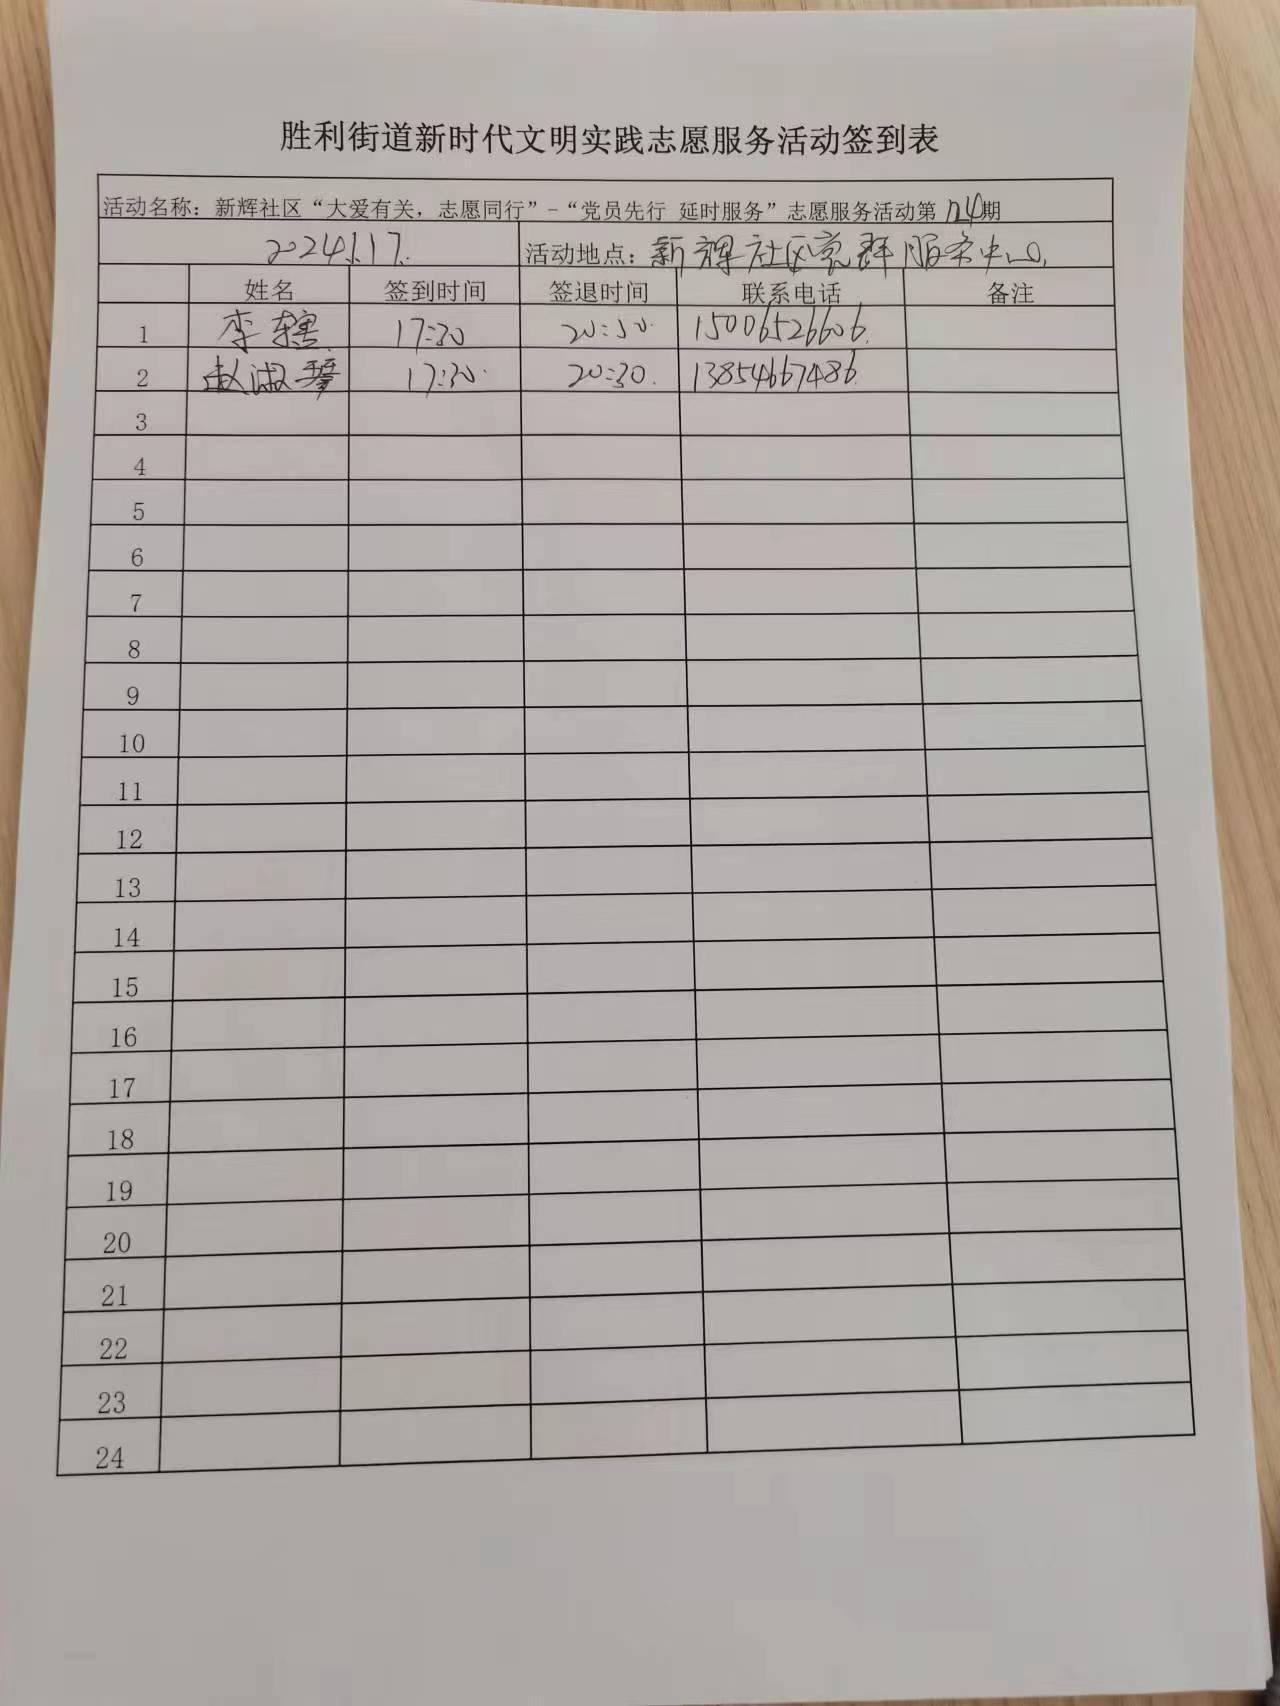 胜利街道新时代文明实践志愿服务活动签到表
活动名称：新辉社区“大爱有关，志愿同行”-“党员先行 延时服务”志愿服务活动第124期
2024.1.17. 活动地点：新辉社区党群服务中心.
姓名 签到时间 签退时间 联系电话 备注
1 李辖 17:30 20:30 15006526606.
2 赵淑琴 17:30. 20:30. 13854667486.
3
4
5
6
7
8
9
10
11
12
13
14
15
16
17
18
19
20
21
22
23
24